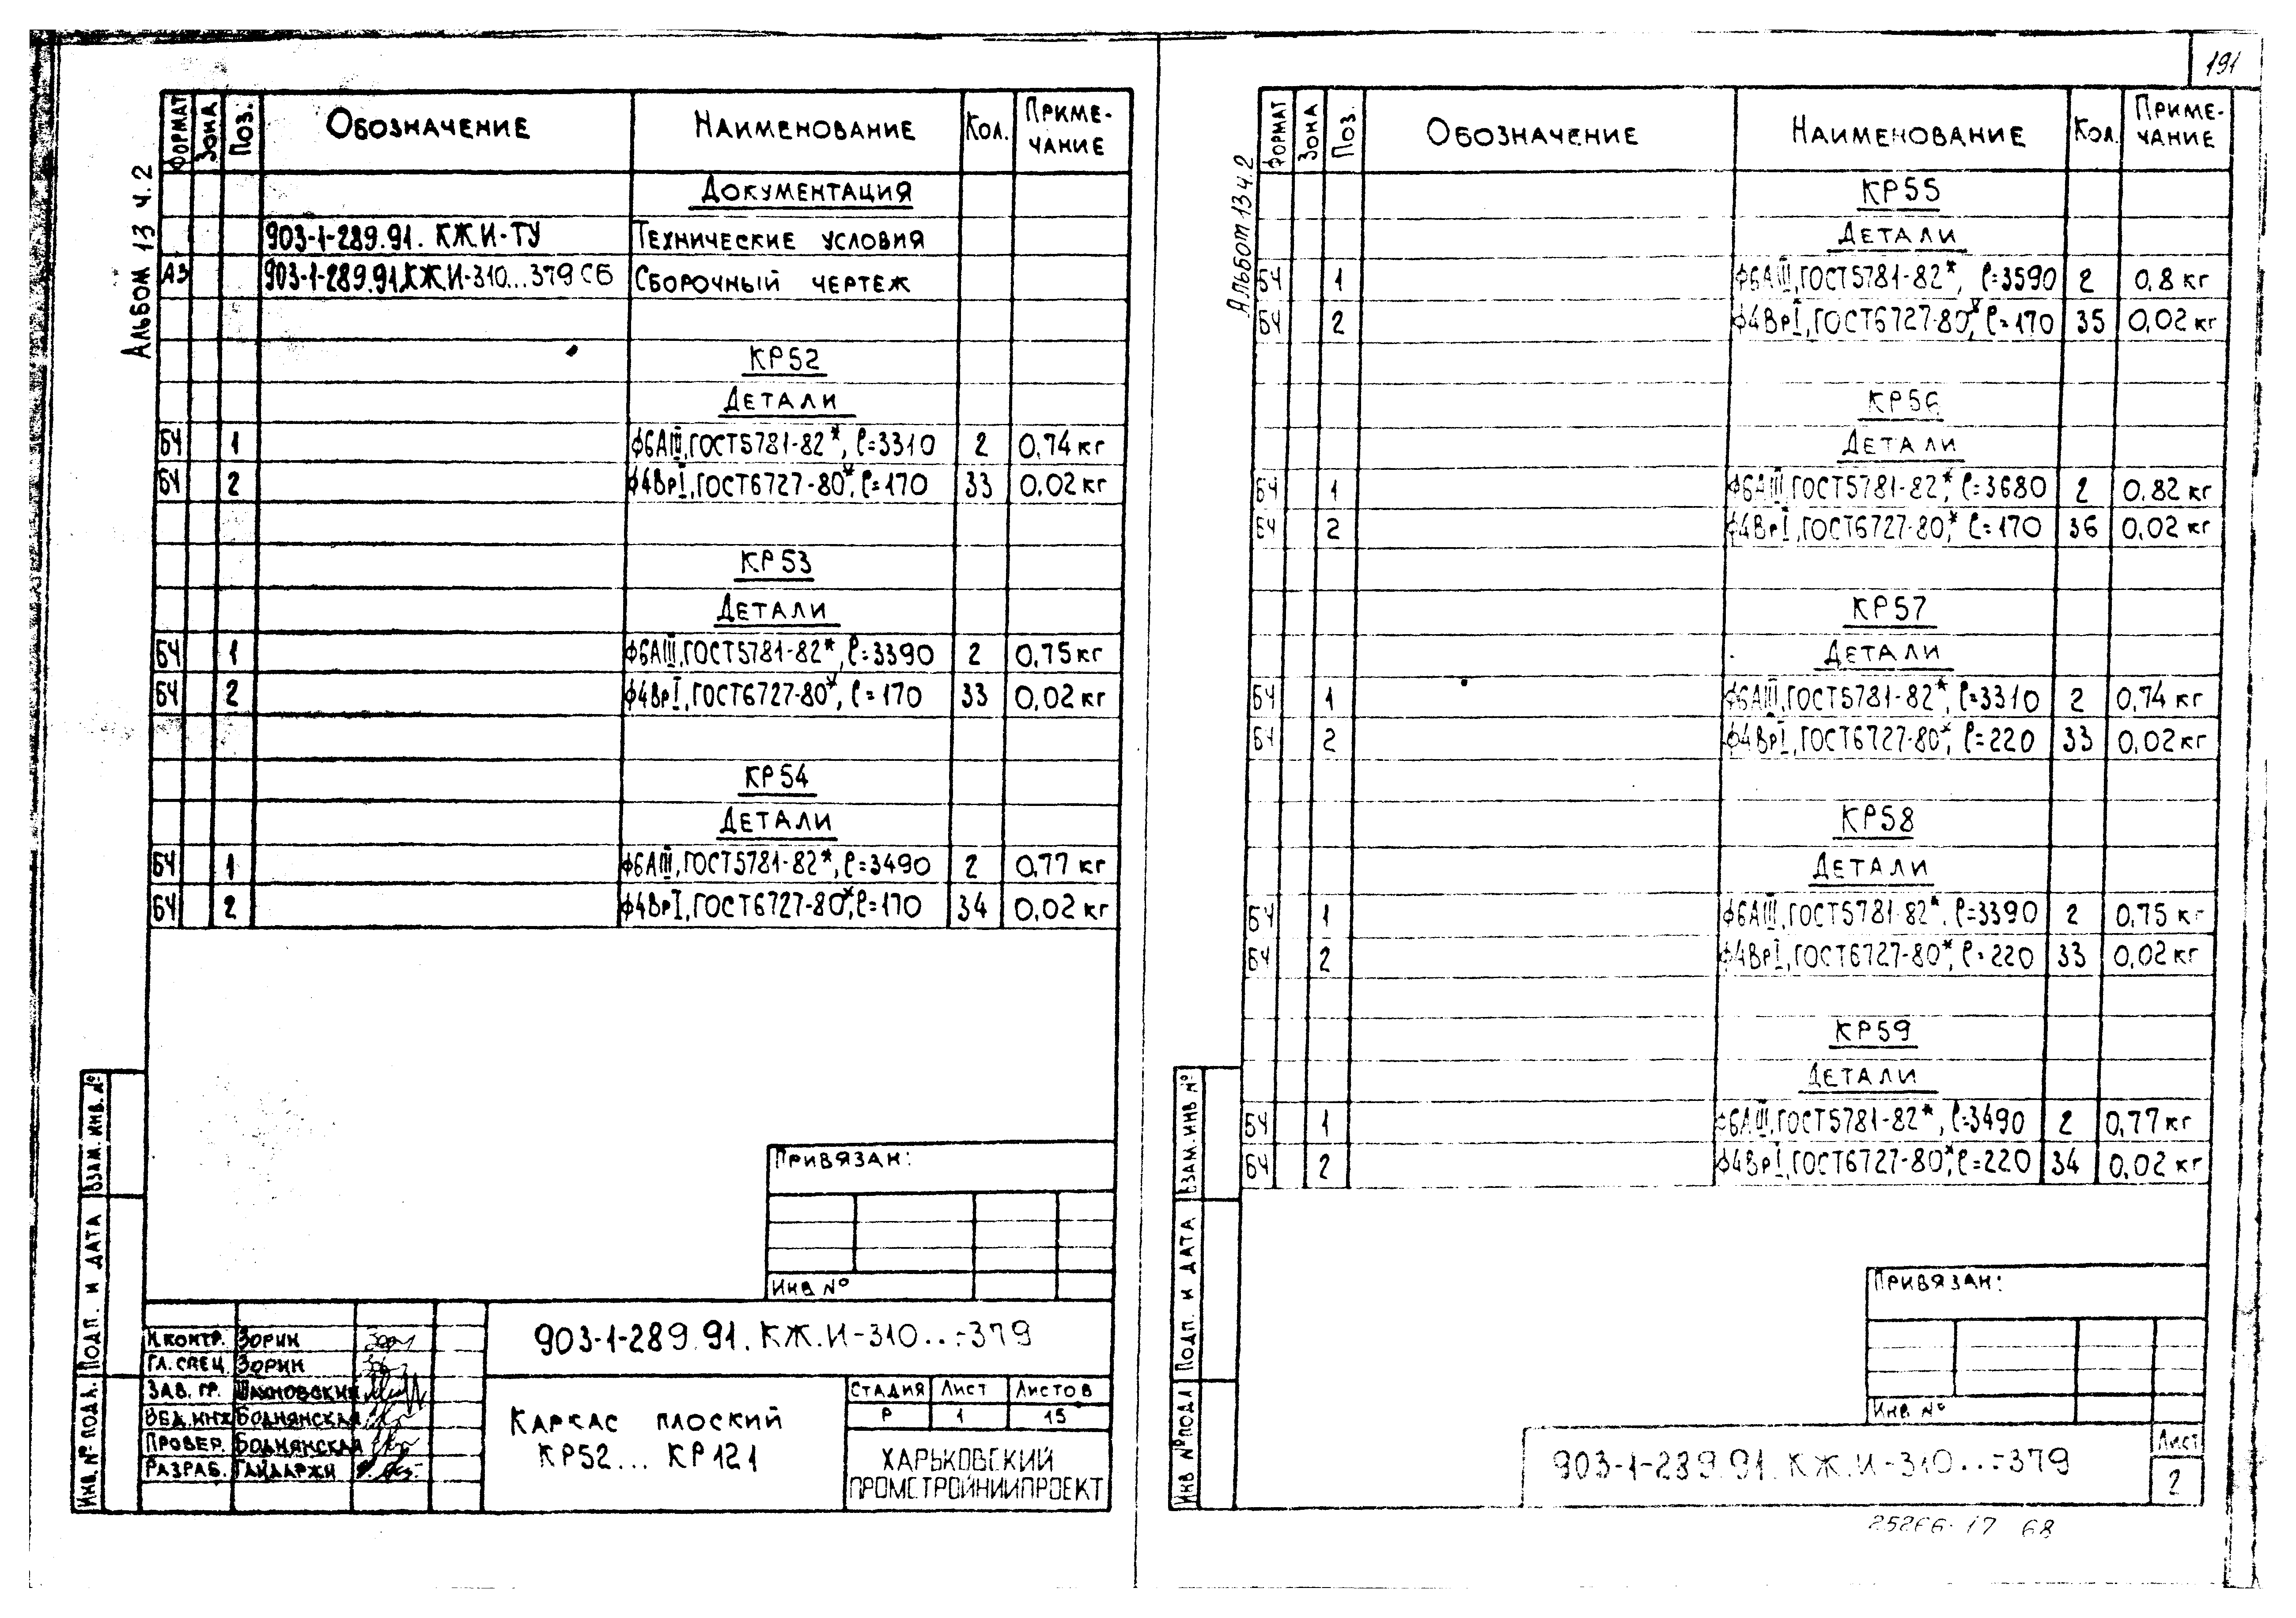 191
Альбом 13 ч.2
Формат Зона Поз. Обозначение Наименование Кол. Приме-чание
Документация
903-1-289.91. КЖИ-ТУ Технические условия
А3 903-1-289.91.КЖ.И-310...379 СБ Сборочный чертеж
КР52
Детали
БЧ 1 ф6АIII, ГОСТ5781-82*, ℓ=3310 2 0,74 кг
БЧ 2 ф4ВрI, ГОСТ6727-80*, ℓ=170 33 0.02 кг
КР53
Детали
БЧ 1 ф6АIII, ГОСТ5781-82*, ℓ=3390 2 0,75 кг
БЧ 2 ф4ВрI, ГОСТ6727-80*, ℓ=170 33 0,02 кг
КР54
Детали
БЧ 1 ф6АIII, ГОСТ5781-82*, ℓ=3490 2 0,77 кг
БЧ 2 ф4ВрI, ГОСТ6727-80*, ℓ=170 34 0,02 кг
Привязан:
Инв №
Взам. инв. №
Подп. и дата
Инв. № подл.
Н.контр. Зорин
Гл. спец. Зорин
Зав. гр. Шахновский
Вед.инж Боднянская
Провер. Боднянская
Разраб. Гайдаржи
903-1-289.91. КЖ.И-310...-379
Каркас плоский
КР52... КР121
Стадия Лист Листов
Р 1 15
Харьковский
Промстройниипроект
Альбом 13 ч.2
Формат Зона Поз. Обозначение Наименование Кол. Приме-чание
КР55
Детали
БЧ 1 ф6АIII, ГОСТ5781-82*, ℓ=3590 2 0,8 кг
БЧ 2 ф4ВрI, ГОСТ6727-80*, ℓ=170 35 0,02 кг
КР56
Детали
БЧ 1 ф6АIII, ГОСТ5781-82*, ℓ=3680 2 0,82 кг
БЧ 2 ф4ВрI, ГОСТ6727-80*, ℓ=170 36 0,02 кг
КР57
Детали
БЧ 1 ф6АIII, ГОСТ5781-82*, ℓ=3310 2 0,74 кг
БЧ 2 ф4ВрI, ГОСТ6727-80*, ℓ=220 33 0,02 кг
КР58
Детали
БЧ 1 ф6АIII, ГОСТ5781-82*, ℓ=3390 2 0,75 кг
БЧ 2 ф4ВрI, ГОСТ6727-80*, ℓ=220 33 0,02 кг
КР59
Детали
БЧ 1 ф6АIII, ГОСТ5781-82*, ℓ=3490 2 0,77 кг
БЧ 2 ф4ВрI, ГОСТ6727-80*, ℓ=220 34 0,02 кг
Привязан:
Инв №
Взам. инв №
Подп. и дата
Инв № подл
903-1-289.91. КЖ.И-310...-379
Лист
2
25266-17 68